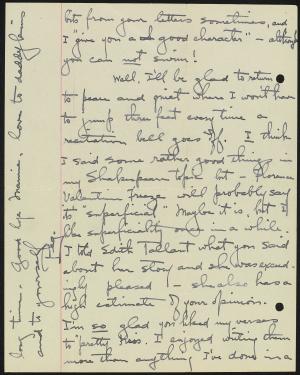 bits from your letters sometimes, and
I "give you a good character" - although
you can not swim!
Well, I'll be glad to return
to peace and quiet where I won't have
to jump three feet every time a
recitation bell goes off. I think
I said some rather good things in
my Shakespeare topic but - Florence
Valentine will probably say
to "superficial". Maybe it is, but I
like superficiality once in a while.
I told Edith Tallant what you said
about her story and she was exceed-
ingly pleased - she also has a
high estimate of your opinion.
I'm so glad you liked my verses
to "pretty Miss. I enjoyed writing them
more than anything I've done in a
long time. Good bye Mamie, love to daddykins
and to yourself